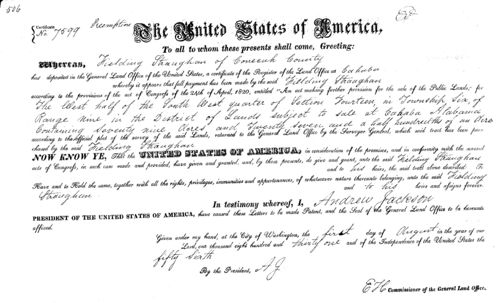 506
Preemption
Certificate
No. 7599
The United States of America,
To all to whom these presents shall come, Greeting:
WHEREAS, Fielding Straughan of Conecuh County
has deposited in the General Land Office of the United States, a certificate of the Register of the Land Office at Cahaba
whereby it appears that full payment has been made by the said Fielding Straughan
according to the provisions of the act of Congress of the 24th of April, 1820, entitled "An act making further provision for the sale of the Public Lands," for
The West half of the South West quarter of Section Fourteen, in Township Six, of
Range nine in the District of Lands subject to sale at Cahaba Alabama
Containing Seventy nine Acres and Twenty seven and a half hundredths of an Acre
according to the official plat of the survey of the said Lands, returned to the General Land Office by the Surveyor General, which said tract has been purchased
by the said Fielding Straughan
NOW KNOW YE, That the UNITED STATES OF AMERICA, in consideration of the premises, and in conformity with the several
acts of Congress, in such case made and provided, have given and granted, and, by these presents, do give and grant, unto the said Fielding Straughan
and to his heirs, the said tract above described: To
Have and to Hold the same, together with all the rights, privileges, immunities and appurtenances, of whatsoever nature thereunto belonging, unto the said Fielding
Straughan and to his heirs and assigns forever.
In testimony whereof, I, Andrew Jackson
PRESIDENT OF THE UNITED STATES OF AMERICA, have caused these Letters to be made Patent, and the Seal of the General Land Office to be hereunto
affixed.
Given under my hand, at the City of Washington, the first day of August in the year of our
Lord, one thousand eight hundred and thirty one and of the Independence of the United States the
fifty sixth
By the President, A J
E H Commissioner of the General Land Office.